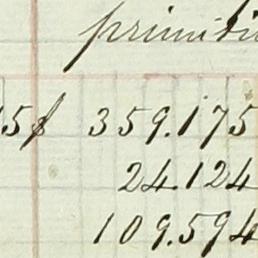 primiti
5$ 359.175
24.124
109.594